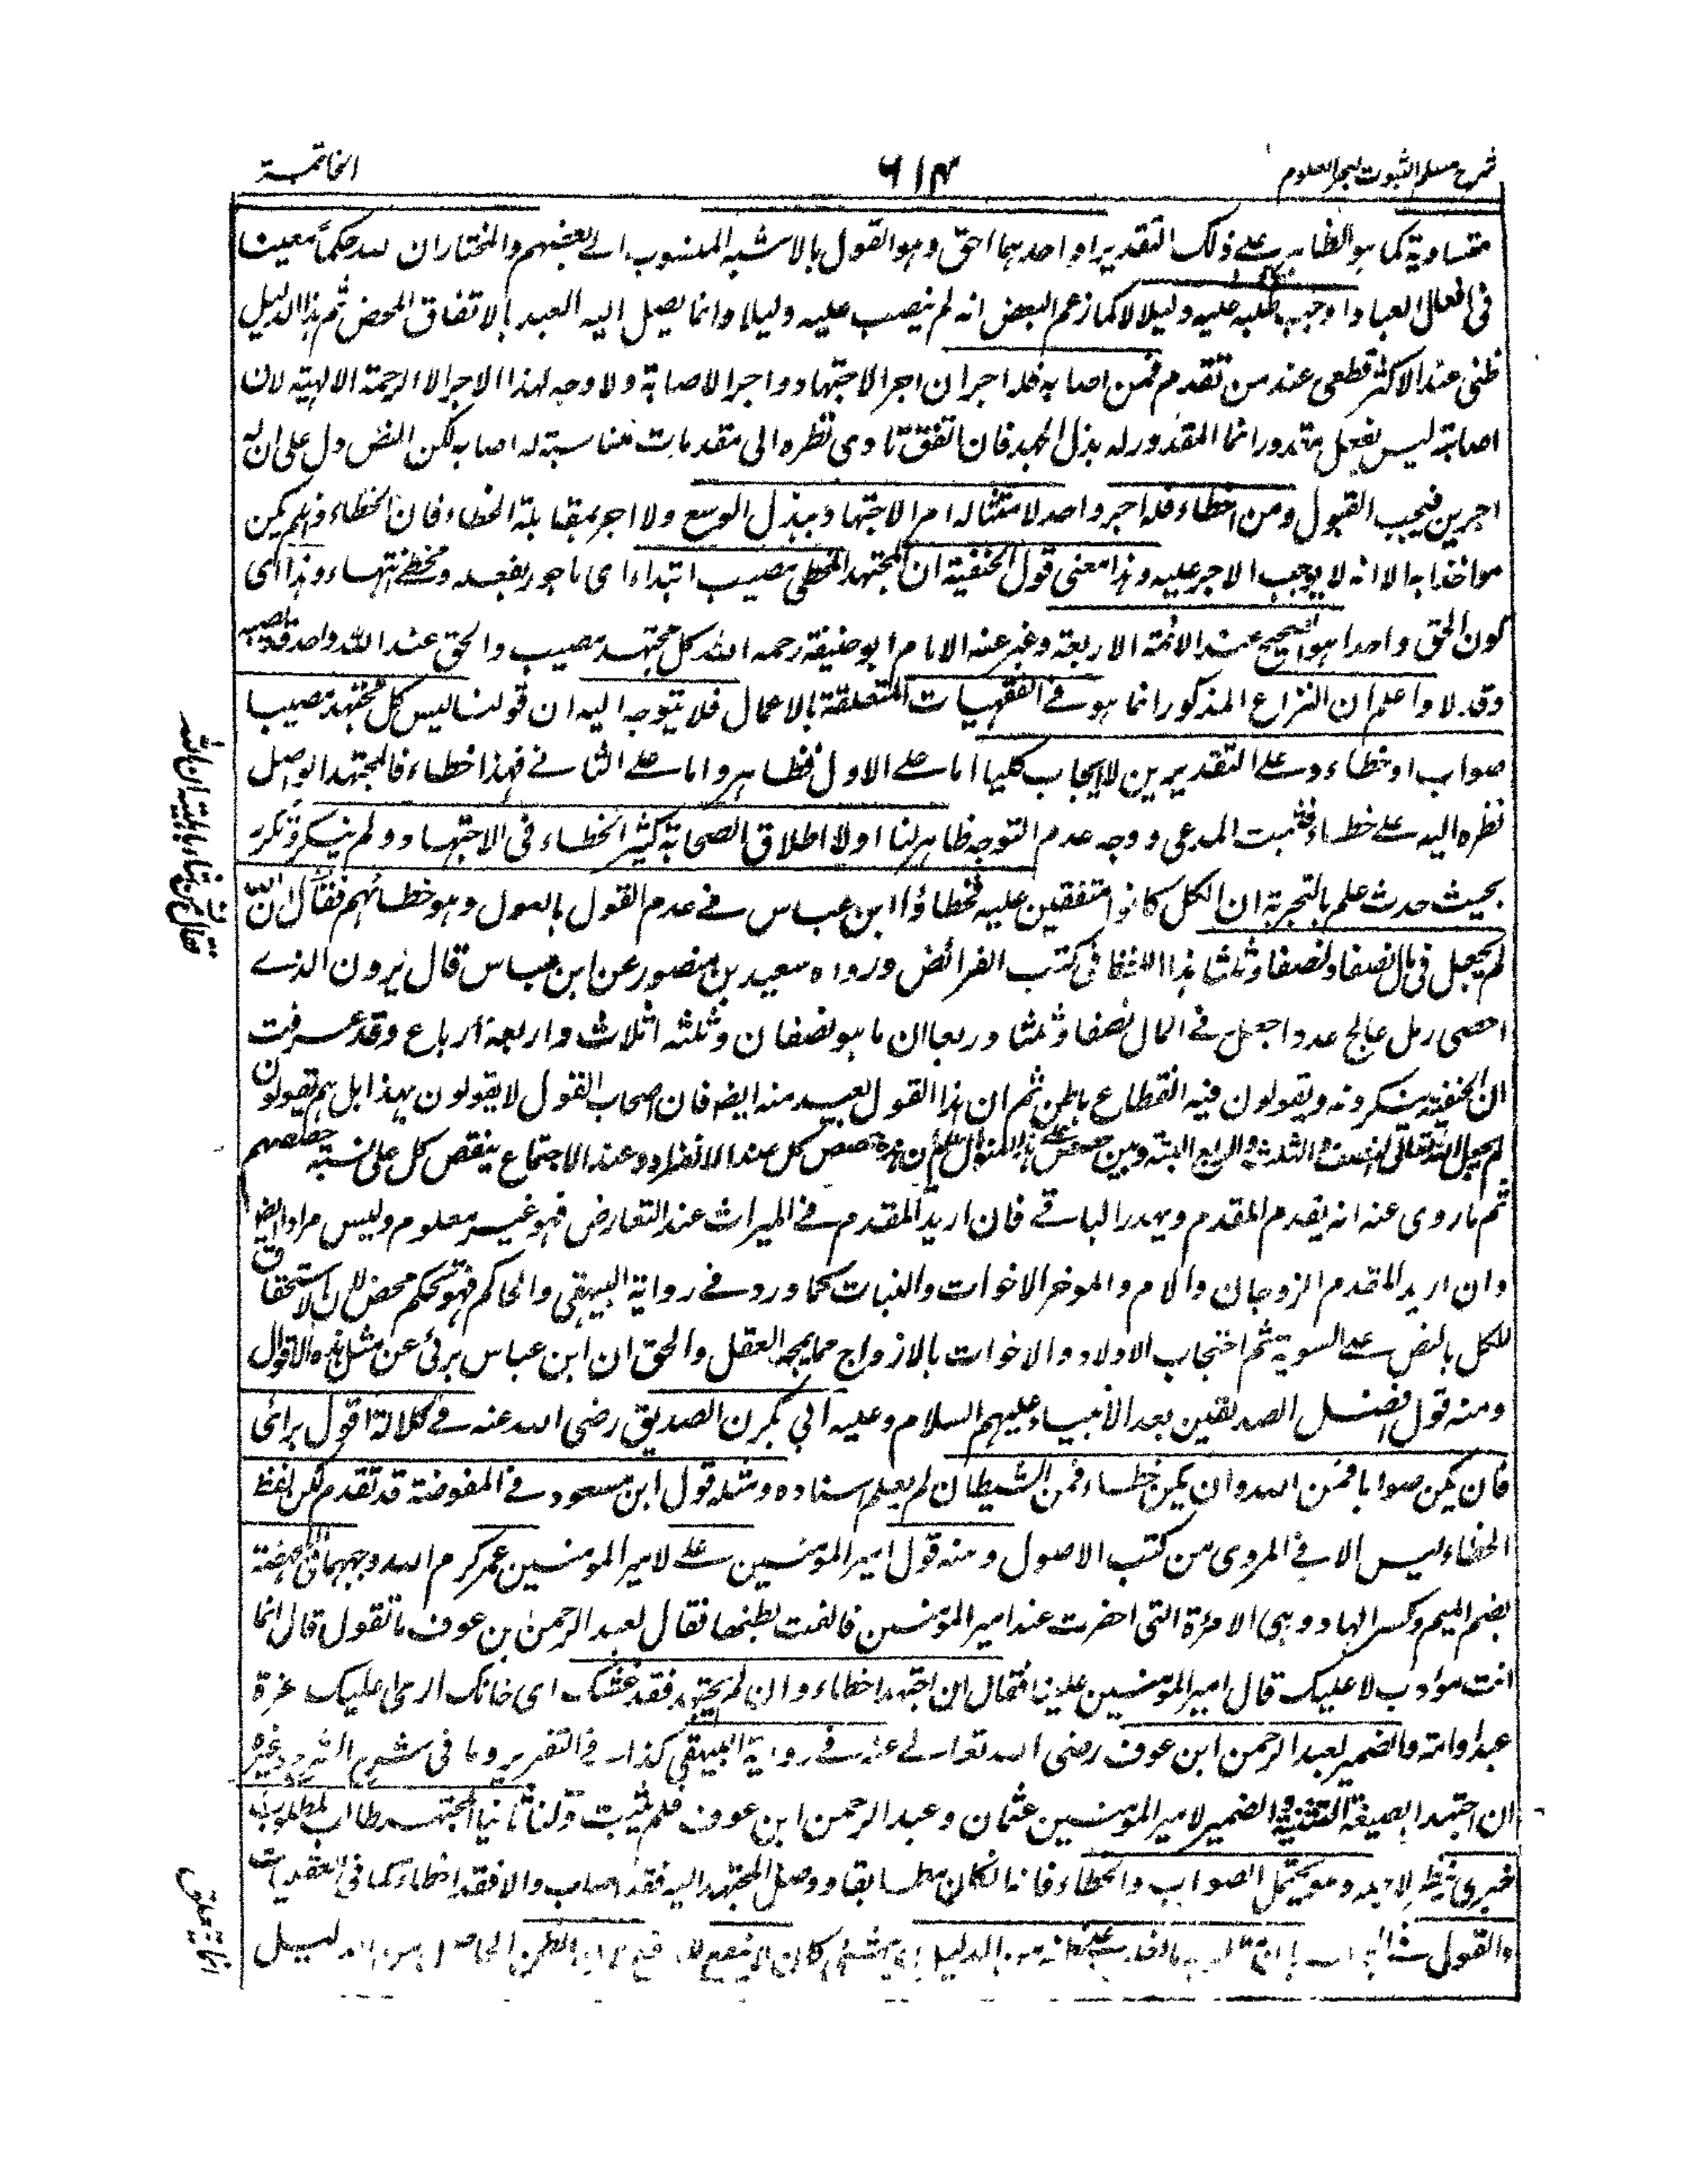 شرح مسلم الثبوت لبحر العلوم
٦١٤
الخاتمة
متساوية كما هو الظاهر على ذلك التقدير او احدهما احق وهو القول بالاشبه المنسوب الى بعضهم والمختار ان لله حكماً معينا
فى افعال العباد اوجب طلبه عليه دليلا لا كما زعم البعض انه لم ينصب عليه دليلا وانما يصل اليه العبد بالاتفاق المحض ثم هذا الدليل
ظنى عند الاكثر قطعى عند من تقدم فمن اصابه فله اجران اجر الاجتهاد واجر الاصابة ولا وجه لهذا الاجر الا الرحمة الالهية لان
اصابة ليس بفعل مقدور انما المقدور له بذل الجهد فان اتفق تادى نظره الى مقدمات مناسبة له اصابه لكن النص دل على ان له
اجرين فيجب القبول ومن اخطاء فله اجر واحد لامتثاله امر الاجتهاد ببذل الوسع ولا اجر بمقابلة الخطاء فان الخطاء وان لم يكن
مواخذا به الا انه لا يوجب الاجر عليه وهذا معنى قول الحنفية ان المجتهد المخطى مصيب ابتداء اى ماجور بفعله ومخطئ انتهاء وهذا اى
كون الحق واحدا هو الصحيح عند الائمة الاربعة وعبر عنه الامام ابو حنيفة رحمه الله كل مجتهد مصيب والحق عند الله واحد قد يصيبه
وقد لا واعلم ان النزاع المذكور انما هو فى الفقهيات المتعلقة بالاعمال فلا يتوجه اليه ان قولنا ليس كل مجتهد مصيب
صواب او خطاء وعلى التقديرين لا ايجاب كليا اما على الاول فظاهر واما على الثانى فهذا خطاء فالمجتهد الواصل
نظره اليه على خطاء فثبت المدعى ووجه عدم التوجه ظاهر لنا اولا اطلاق الصحابة كثيرا الخطاء فى الاجتهاد ولم ينكر وتكرر
بحيث حدث علم بالتجربة ان الكل كانوا متفقين عليه فخطاؤا ابن عباس فى عدم القول بالعول وهو خطائهم فقال ان الله
لم يجعل فى مال نصفا ونصفا وثلثا هذا اللفظ فى كتب الفرائض ورواه سعيد بن منصور عن ابن عباس قال يرون الذى
احصى رمل عالج عددا جعل فى المال نصفا وثلثا وربعا ان ما هو نصفان وثلثه اثلاث واربعة ارباع وقد عرفت
ان الحنفية ينكرونه ويقولون فيه انقطاع باطن ثم ان هذا القول بعيد منه ايضا فان اصحاب القول لا يقولون بهذا بل هم يقولون
لم يجعل الله تعالى النصف والثلث والربع البتة وبين حصص كل عند الانفراد وعند الاجتماع ينقص كل على نسبة حصصهم
ثم ما روى عنه انه يقدم المقدم ويهدر الباقى فان اريد المقدم فى الميراث عند التعارض فهو غير معلوم وليس مرادا ايضا
وان اريد المقدم الزوجان والام والموخر الاخوات والبنات كما ورد فى رواية البيهقى والحاكم فهو تحكم محض لان الاستحقاق
للكل بالنص على السوية ثم احتجاب الاولاد والاخوات بالازواج مما يمجه العقل والحق ان ابن عباس برئ عن مثل هذه الاقوال
ومنه قول افضل الصديقين بعد الأنبياء عليهم السلام وعليه ابي بكرن الصديق رضى الله عنه فى كلالة اقول برائى
فان يكن صوابا فمن الله وان يكن خطاء فمن الشيطان لم يعلم اسناده ومثله قول ابن مسعود فى المفوضة قد تقدم لكن لفظ
الخطاء ليس الا فى المروى من كتب الاصول ومنه قول امير المؤمنين على لامير المومنين عمر كرم الله وجههما فى المجهضة
بضم الميم وكسر الهاء وهى الامرأة التى احضرت عند امير المؤمنين فالقت بطنها فقال لعبد الرحمن بن عوف ما تقول قال انما
انت مؤدب لا عليك قال امير المؤمنين عليا فقال ان اجتهد اخطاء وان لم يجتهد فقد غشك اى خانك ارى عليك غرة
عبد او امته والضمير لعبد الرحمن ابن عوف رضى الله تعالى عنه فى رواية البيهقى كذا فى التقرير وما فى شرح الشرح وغيره
ان اجتهدا بصيغة التثنية والضمير لامير المؤمنين عثمان وعبد الرحمن ابن عوف فلم يثبت ولنا ثانيا المجتهد طالب
وهو يحتمل الصواب والخطاء فاذا كان مطابقا ووصل المجتهد اليه فقد اصاب والا فقد اخطاء كما فى العقليات
والقول